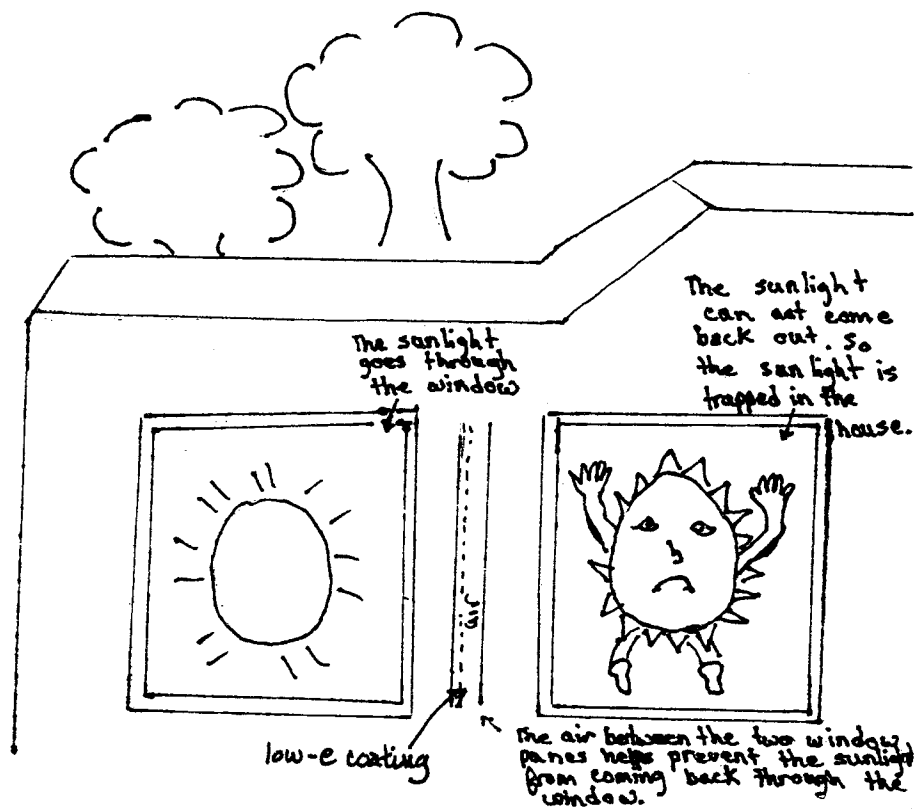 The sunlight
goes through
the window
The sunlight
can not come
back out. So
the sunlight is
trapped in the
house.
air
low-e coating
The air between the two window
panes helps prevent the sunlight
from coming back through the
window.